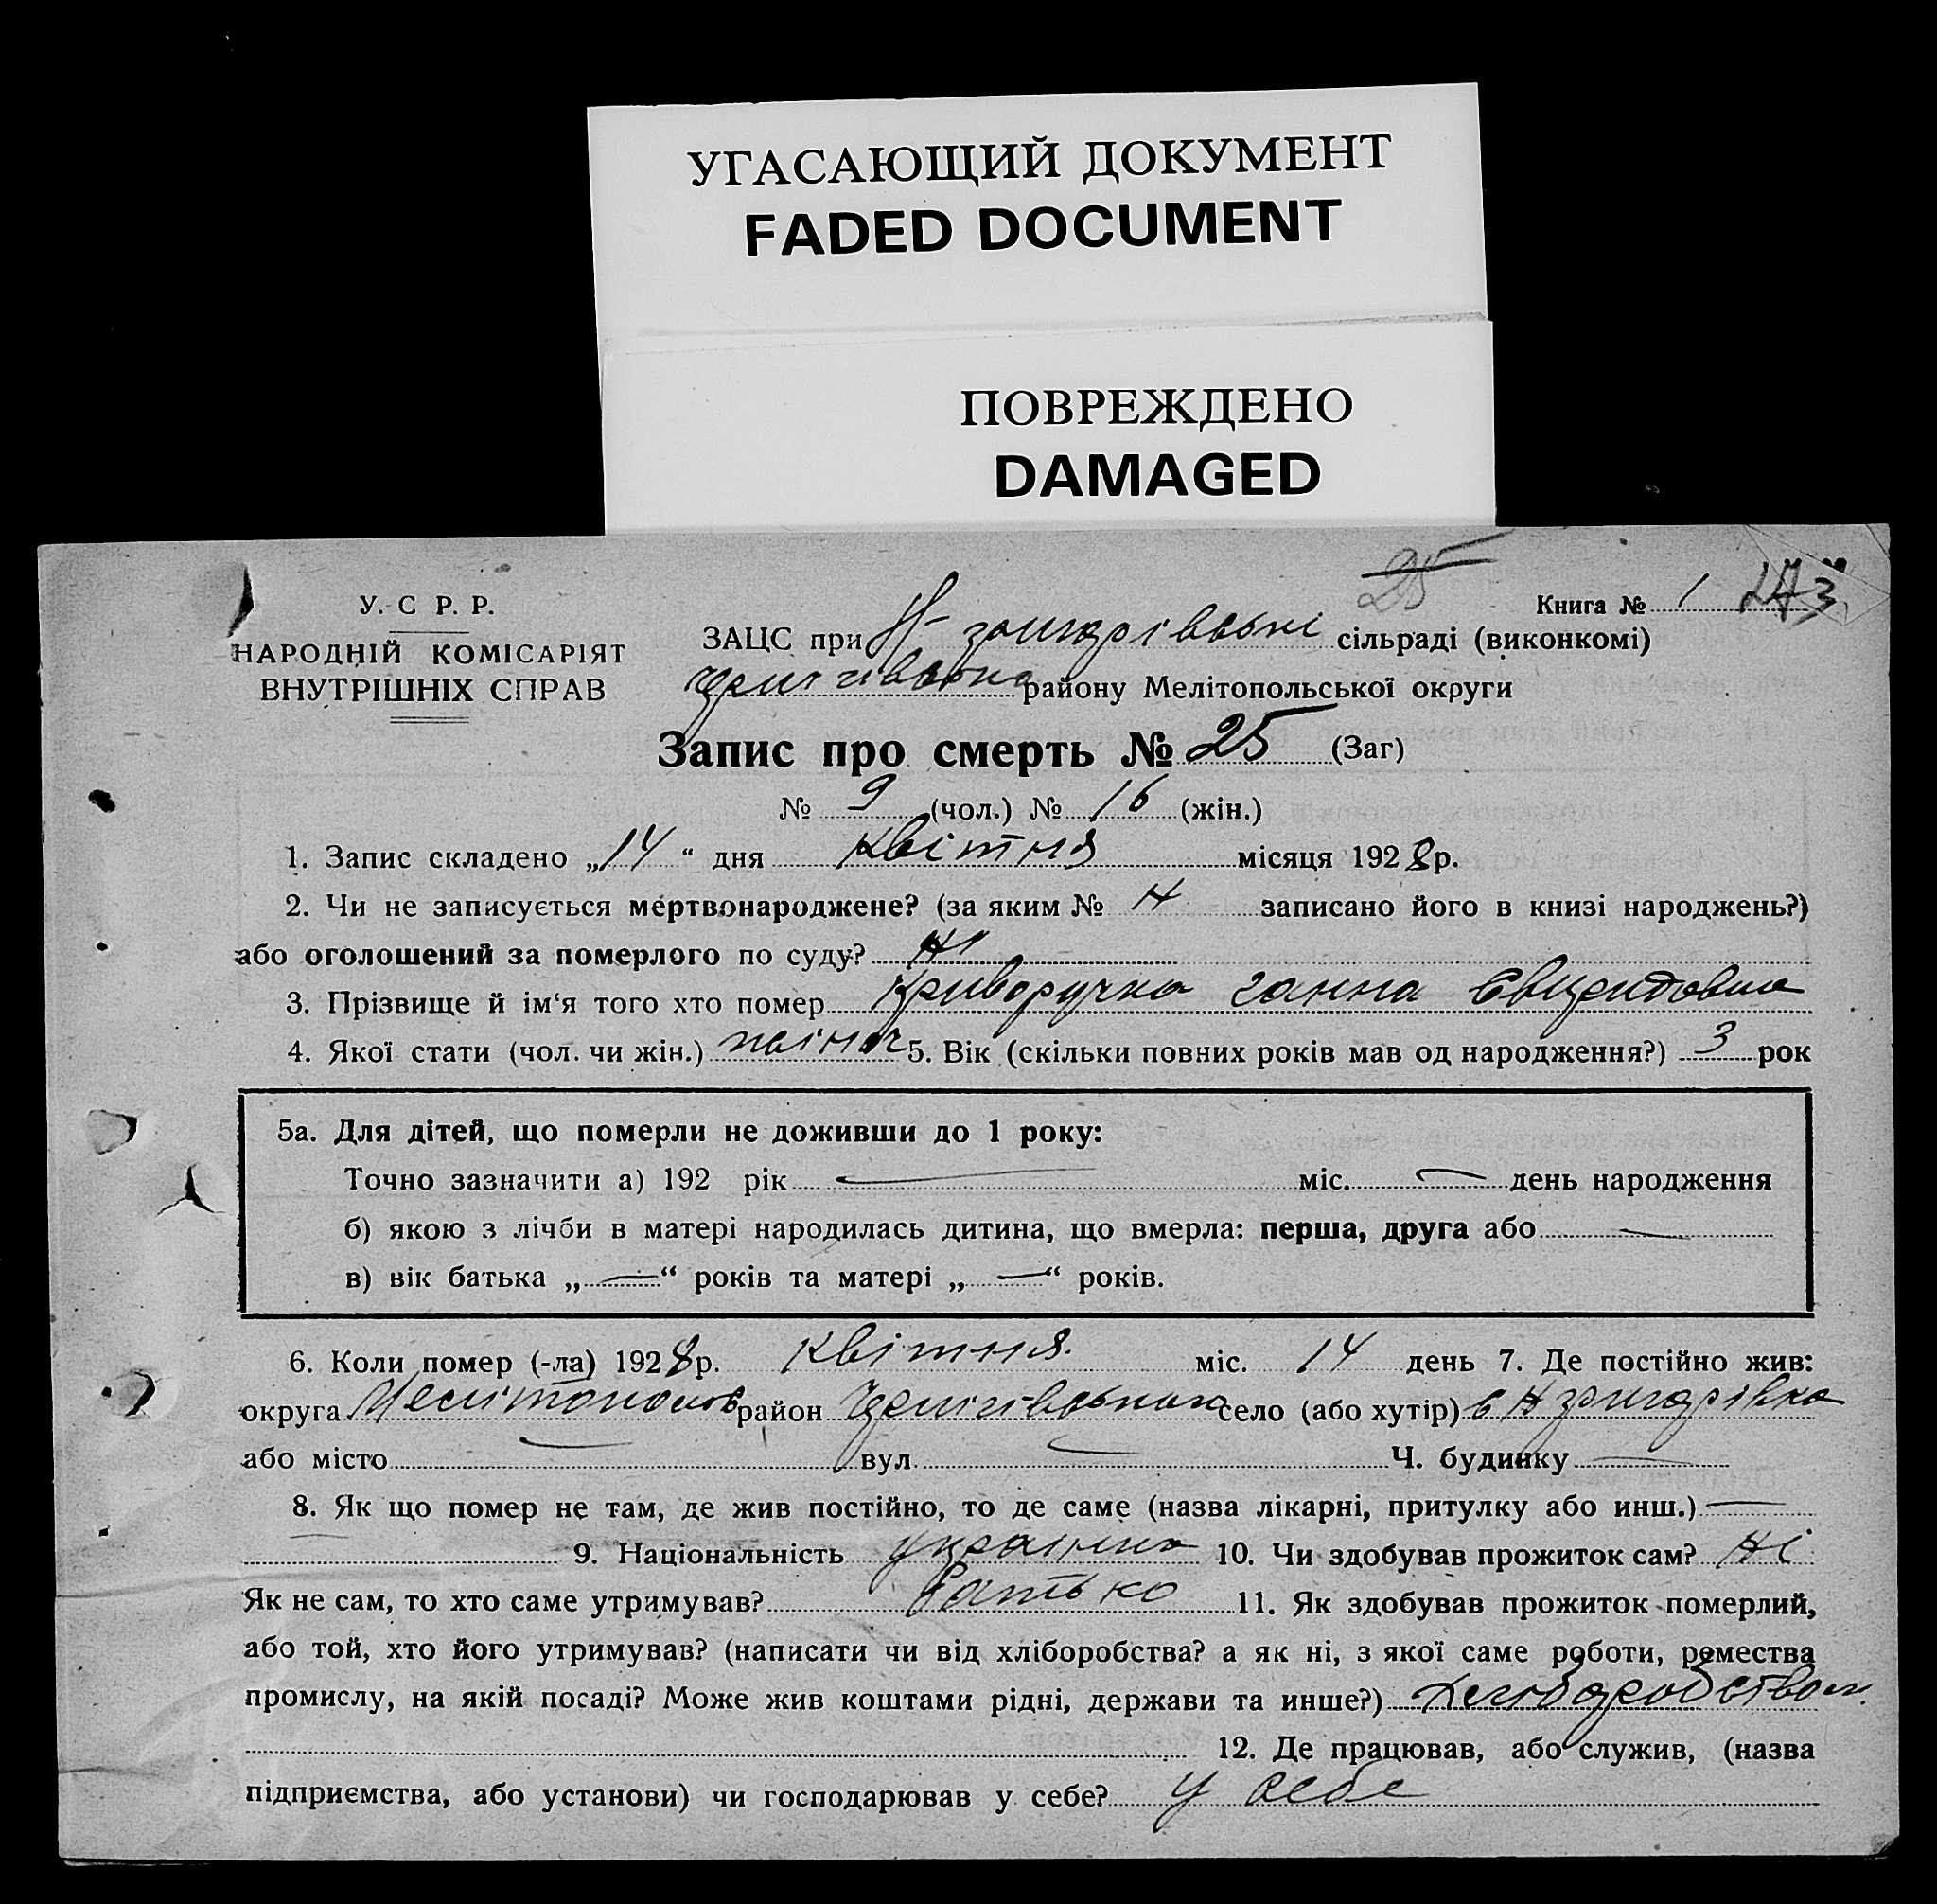 УГАСАЮЩИЙ ДОКУМЕНТ
FADED DOCUMENT
ПОВРЕЖДЕНО
DAMAGED
25
У. С Р. Р.
Книга № 1
НАРОДНІЙ КОМІСАРІЯТ
ВНУТРІШНІХ СПРАВ
ЗАЦС при сільраді (виконкомі)
району Мелітопольської округи
Запис про смерть № 25 (Заг)
№ 9 (чол.) № 16 (жін.)
1. Запис складено „14“ дня квітня місяця 1928 р.
2. Чи не записується мертвонароджене? (за яким № Н записано його в книзі народжень?)
або оголошений за померлого по суду? Ні
3. Прізвище й ім‘я того хто помер Криворучка Ганна
4. Якої стати (чол. чи жін.) 5. Вік (скільки повних років мав од народження?) 3 рок
5а. Для дітей, що померли не доживши до 1 року:
Точно зазначити а) 192 рік — міс. — день народження
б) якою з лічби в матері народилась дитина, що вмерла: перша, друга або —
в) вік батька „—“ років та матері „—“ років.
6. Коли помер (-ла) 1928 р. квітня міс. 14 день 7. Де постійно жив:
округа район село (або хутір)
або місто — вул. — Ч. будинку —
8. Як що помер не там, де жив постійно, то де саме (назва лікарні, притулку або инш.) —
— 9. Національність українка 10. Чи здобував прожиток сам? Ні
Як не сам, то хто саме утримував? батько 11. Як здобував прожиток померлий,
або той, хто його утримував? (написати чи від хліборобства? а як ні, з якої саме роботи, ремества
промислу, на якій посаді? Може жив коштами рідні, держави та инше?)
12. Де працював, або служив, (назва
підприємства, або установи) чи господарював у себе? у себе